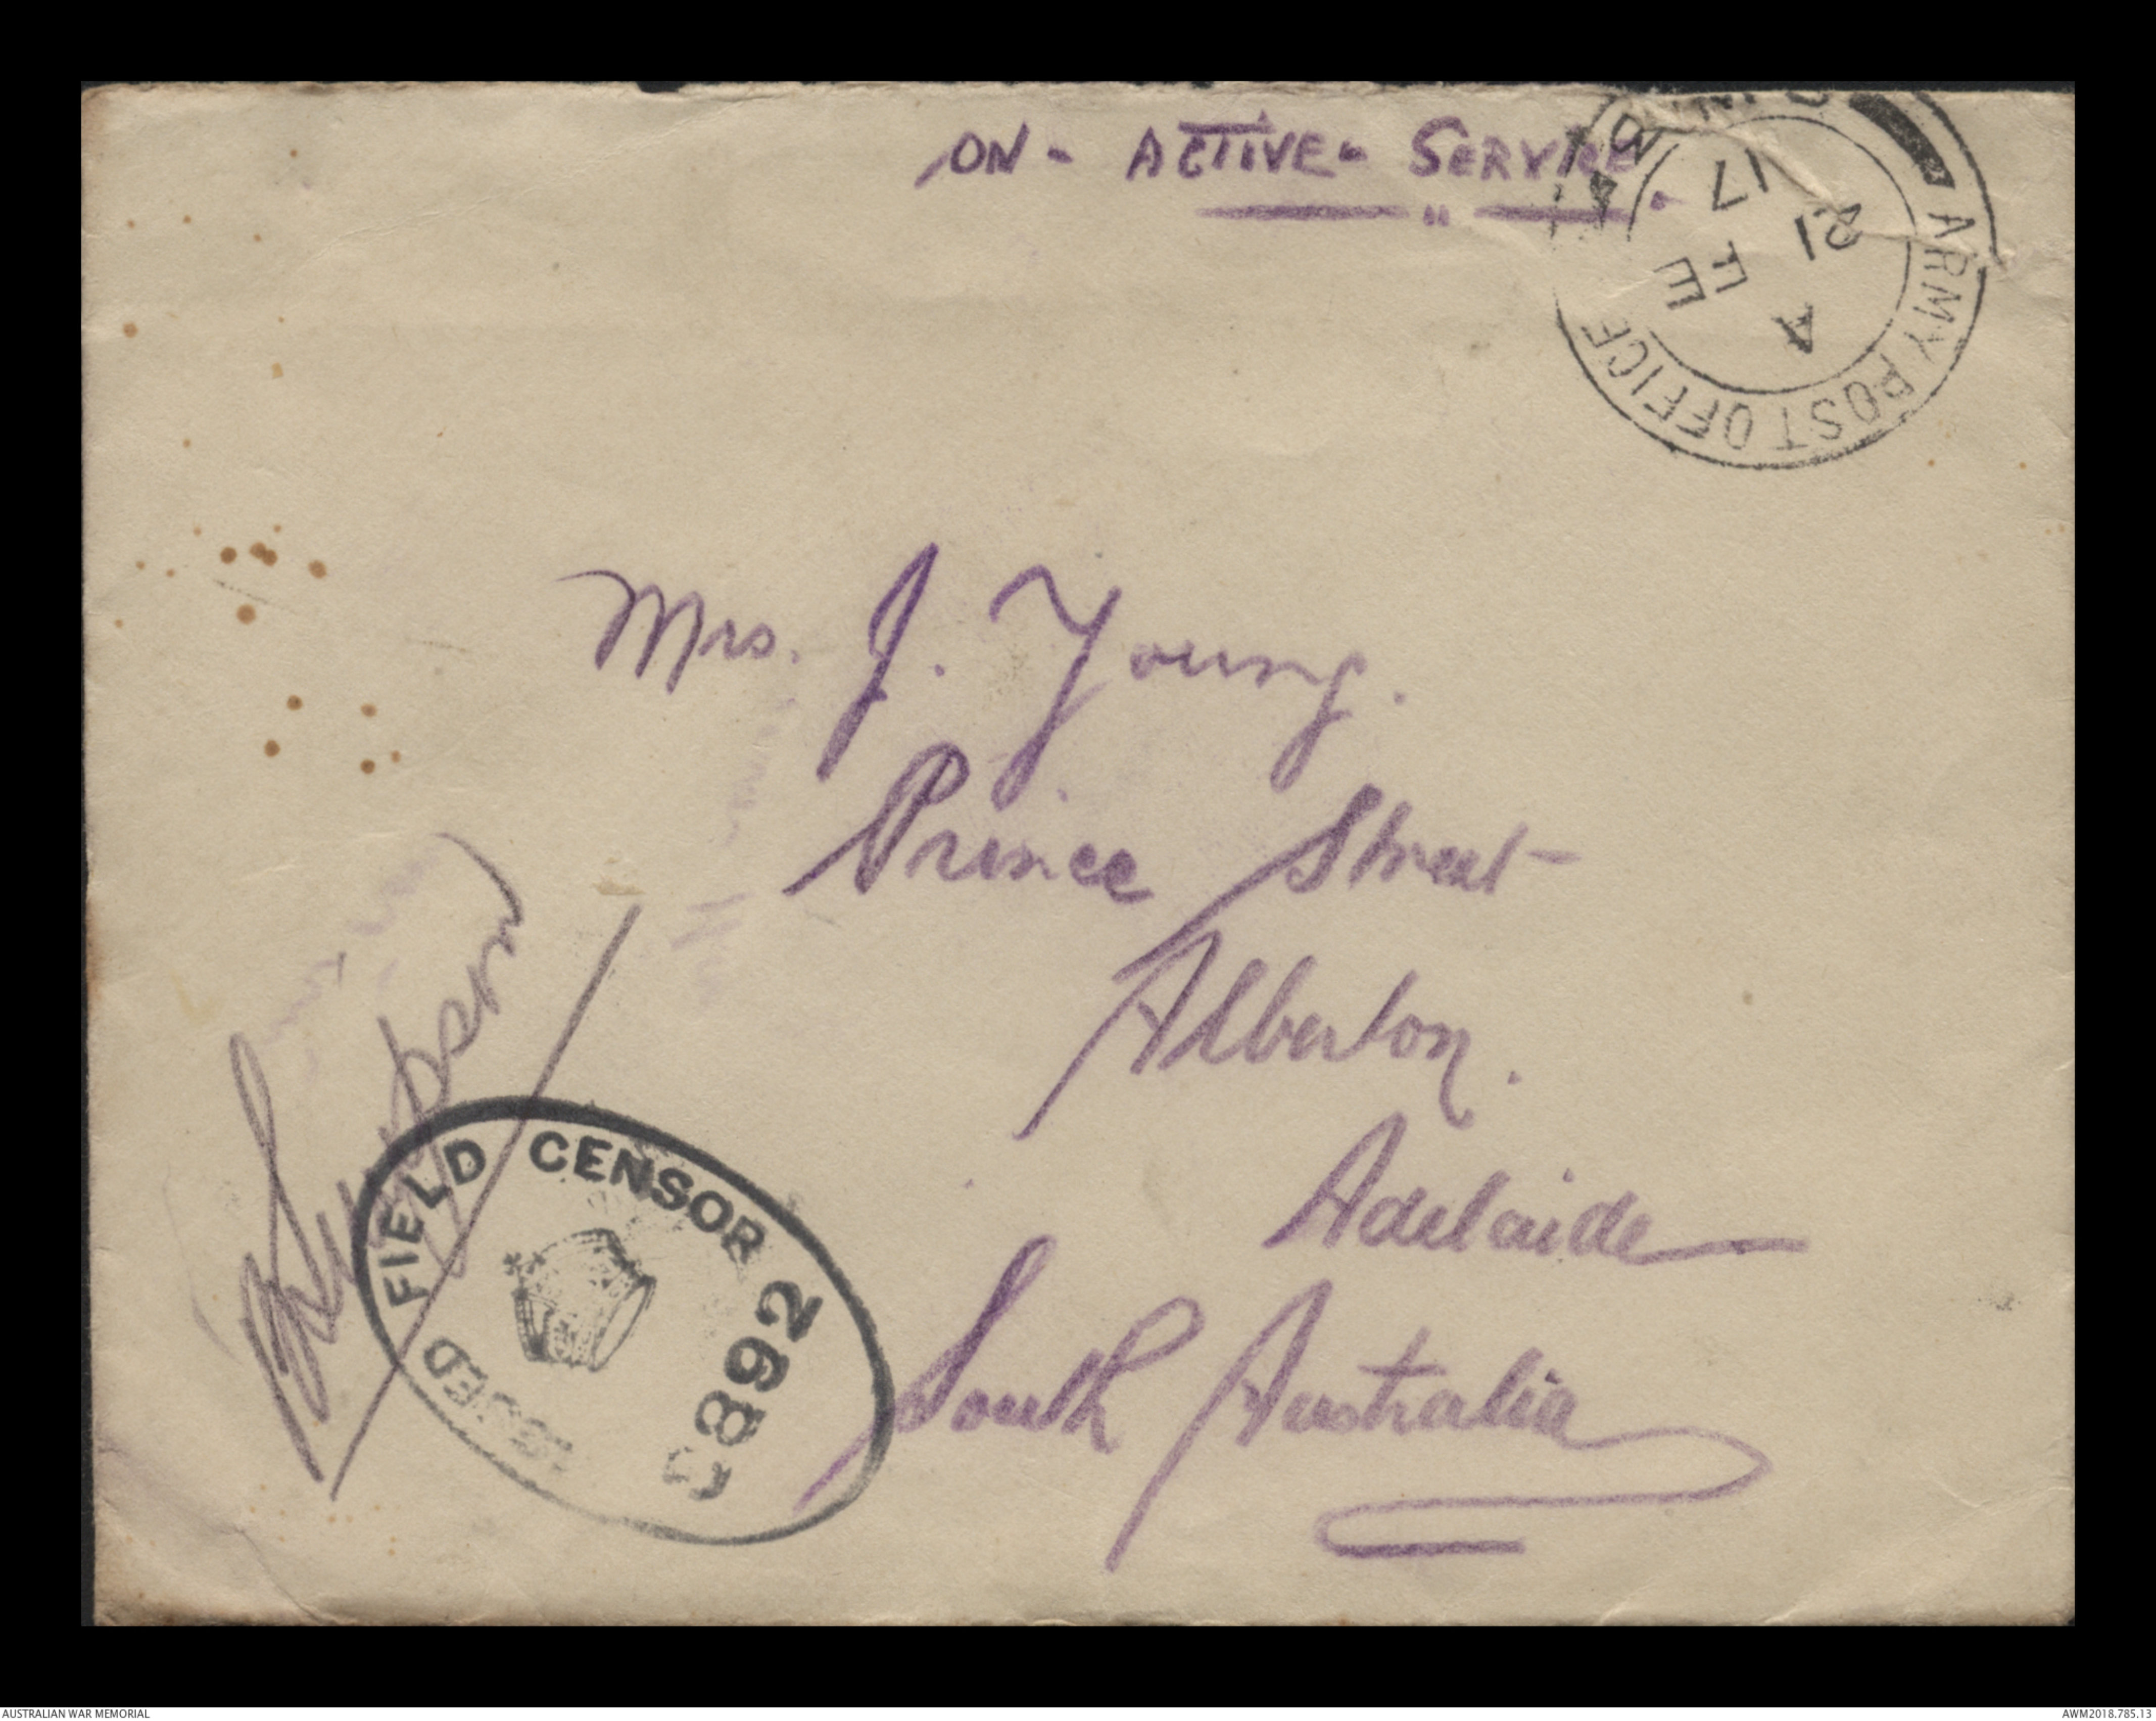 ON - ACTIVE - SERVICE.
ARMY POST OFFICE
A
21 FE
17
Mrs. J. Young.
Prince Street
Alberton.
Adelaide
South Australia
FIELD CENSOR
892
AUSTRALIAN WAR MEMORIAL
AWM2018.785.13